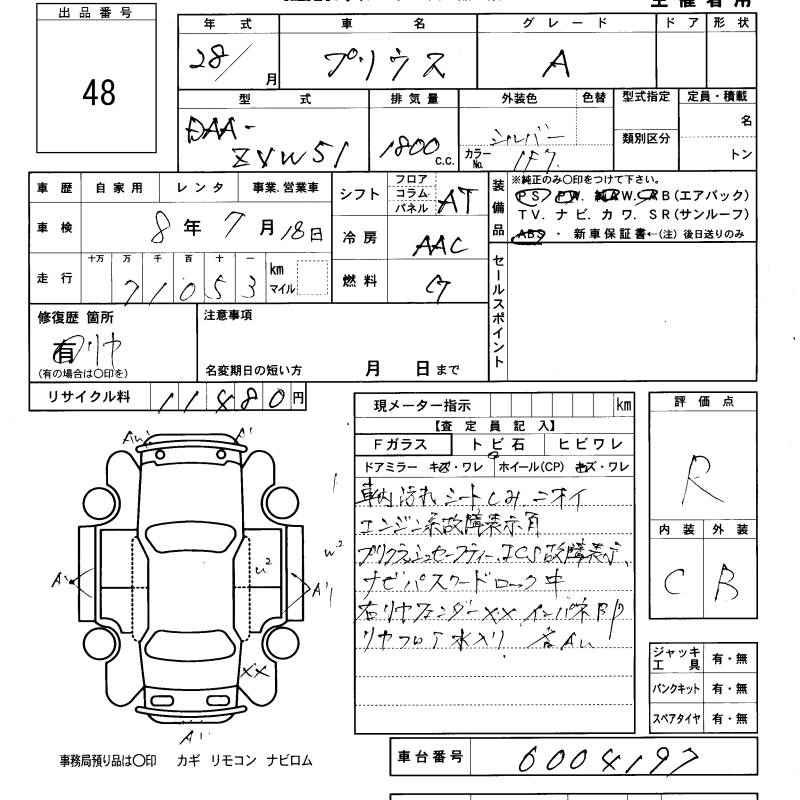 出品番号
48
年式 車名 グレード ドア 形状
28/ 月 プリウス A
型式 排気量 外装色 色替 型式指定 定員・積載
DAA-ZVW51 1800 c.c. シルバー カラーNo. 1F7 類別区分 名 トン
車歴 自家用 レンタ 事業、営業車
車検 8年7月18日
走行 十万 万 千 百 十 一 km マイル
71053
シフト フロア コラム パネル AT
冷房 AAC
燃料 G
装備品 ※純正のみ〇印をつけて下さい。
PS. PW. 純AW. AB(エアバック)
TV. ナビ. カワ. SR(サンルーフ)
ABS ・ 新車保証書←(注) 後日送りのみ
セールスポイント
修復歴 箇所
有 リヤ
(有の場合は〇印を)
注意事項
名変期日の短い方 月 日まで
リサイクル料 11480円
現メーター指示 km
【査定員記入】
Fガラス トビ石 ヒビワレ
ドアミラー キズ・ワレ ホイール(CP) キズ・ワレ
車内汚れ シートしみ ニオイ
エンジン系故障表示有
プリクラッシュセーフティー、ICS故障表示、
ナビパスワードロック中
右リヤフェンダーXX インパネBP
リヤフロア水入り 各AU
評価点
R
内装 外装
C B
ジャッキ工具 有・無
パンクキット 有・無
スペアタイヤ 有・無
A' A' U² W² A'' A'' XX A''
事務局預り品は〇印 カギ リモコン ナビロム
車台番号 6004197